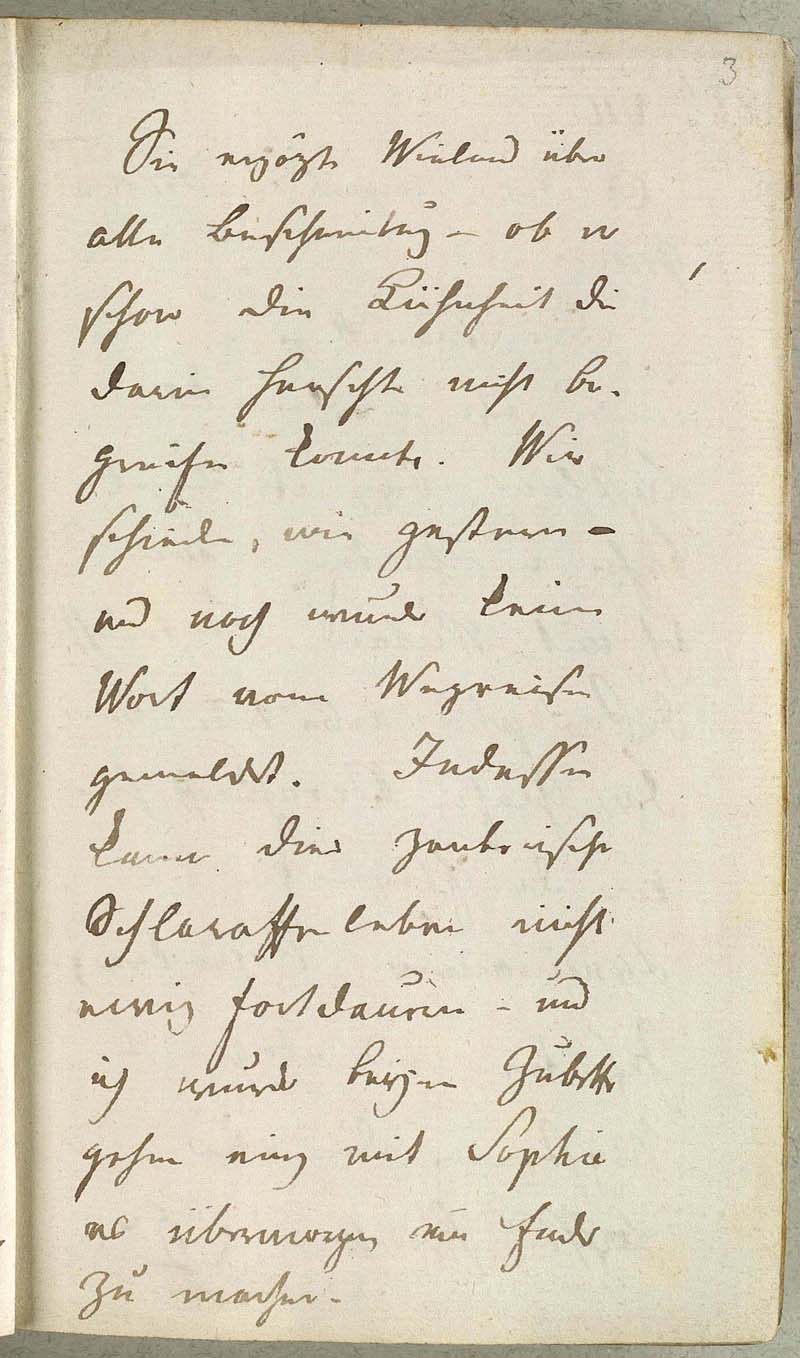 3
Sie ergözte Wieland über
alle Beschreibug – ob er
schon die Kühnheit die
darin herschte nicht be-
greifen konnte. Wir
schieden, wie gestern –
und noch wurde keine
Wort vom Wegreisen
gemeldet. Indessen
kann dies zaubrische
Schlaraffenleben nicht
ewig fortdauren – und
ich wurde beijm Zubette
gehen einig mit Sophie
es übermorgen ein Ende
zu machen –